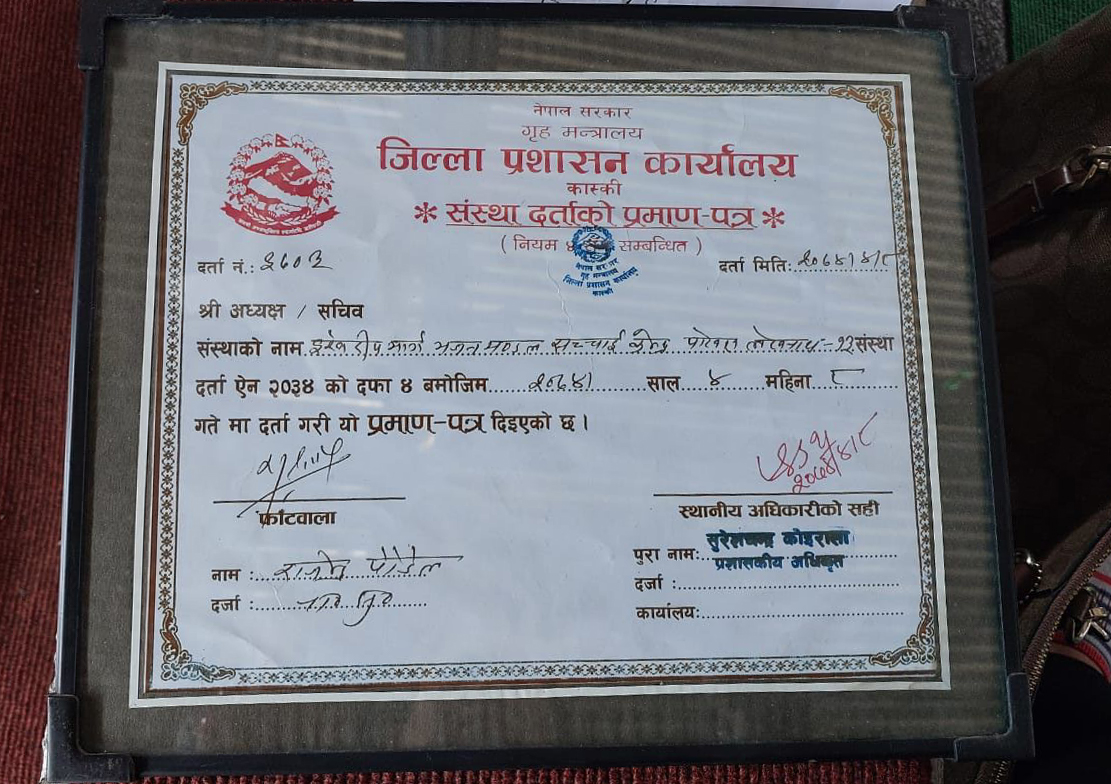 नेपाल सरकार
गृह मन्त्रालय
जिल्ला प्रशासन कार्यालय
कास्की
* संस्था दर्ताको प्रमाण-पत्र *
( नियम ४ सम्बन्धित )
नेपाल सरकार
गृह मन्त्रालय
जिल्ला प्रशासन कार्यालय
कास्की
दर्ता नं.: दर्ता मिति:
श्री अध्यक्ष / सचिव
संस्थाको नाम मार्ग भजन मण्डल सच्चाई केन्द्र पोखरा लेखनाथ-१२ संस्था
दर्ता ऐन २०३४ को दफा ४ बमोजिम साल ४ महिना ८
गते मा दर्ता गरी यो प्रमाण-पत्र दिइएको छ ।
फाँटवाला
स्थानीय अधिकारीको सही
नाम : पौडेल
दर्जा :
पुरा नाम: सुरेशचन्द्र कोइराला
प्रशासकीय अधिकृत
दर्जा :
कार्यालय: